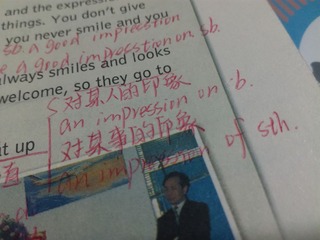 and the expressi
things. You don't give
you never smile and you
sb. a good impression
a good impression on sb.
always smiles and looks
welcome, so they go to
对某人的印象
an impression on
对某事的印象
an impression of sth.
at up